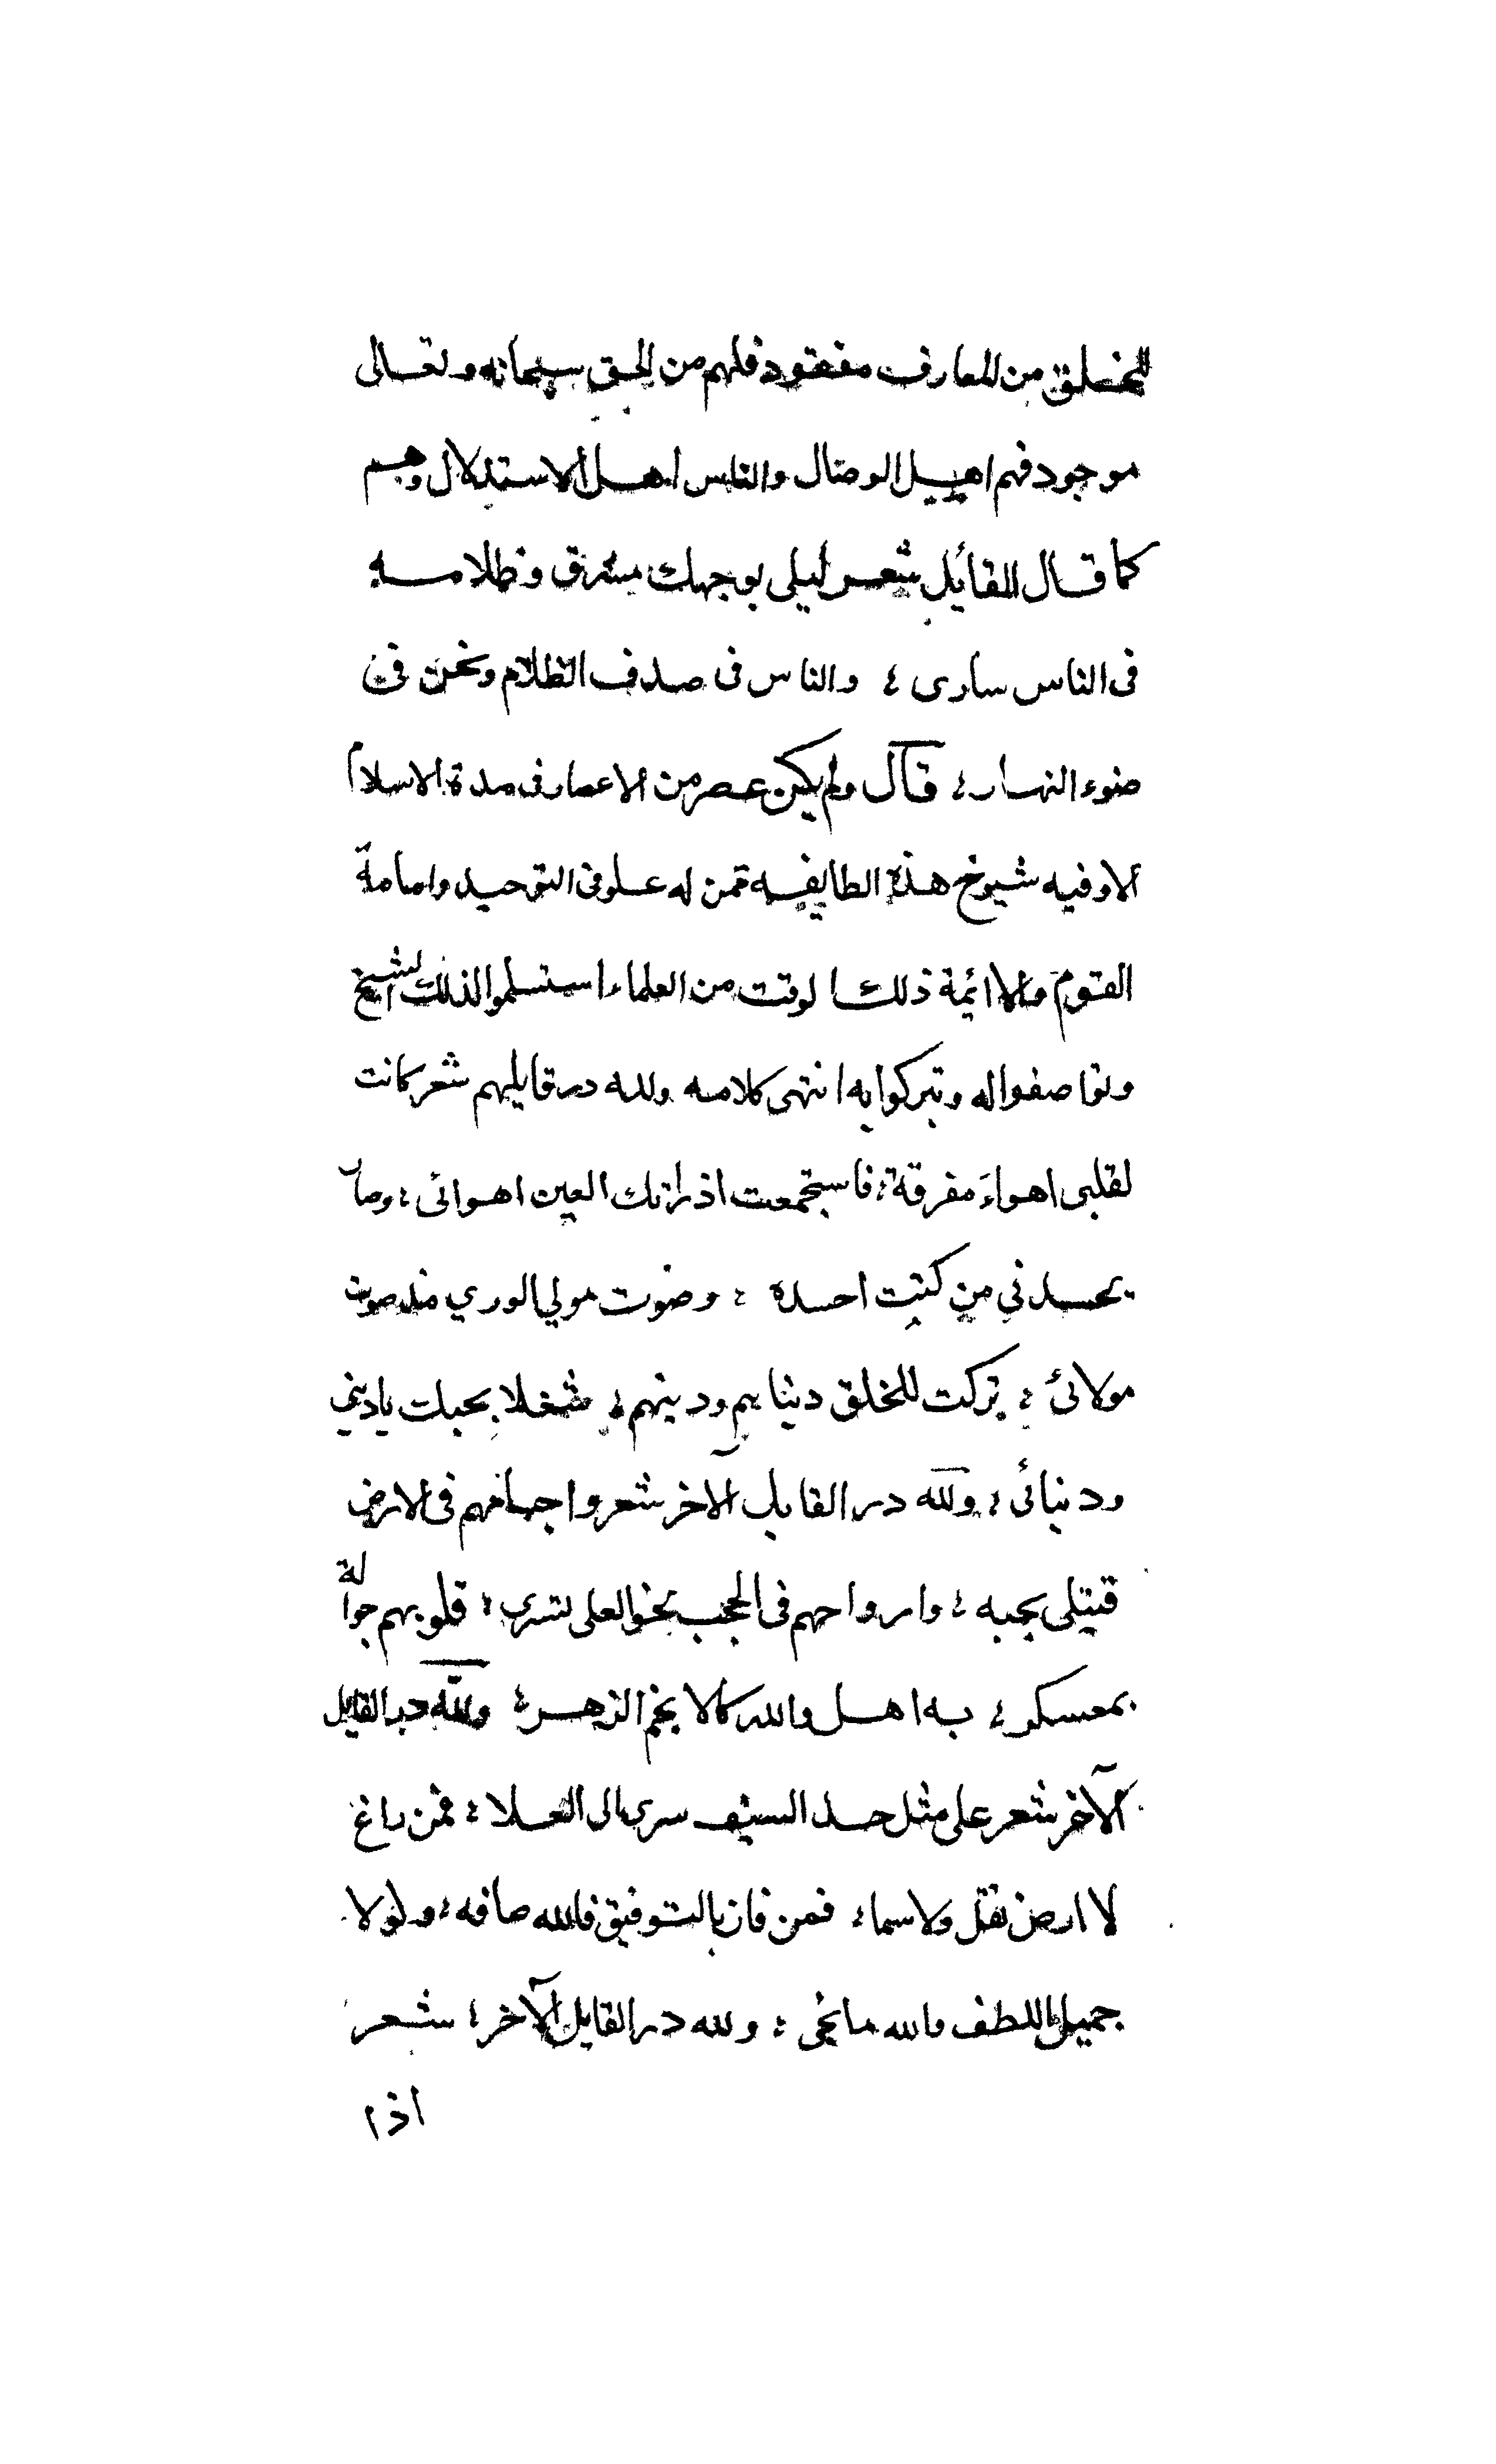 للخلق من المعارف مفقود فلهم من الحق سبحانه وتعالى
موجود فهم اهل الوصال والناس اهل الاستدلال وهم
كما قال القائل شعر ليلى بوجهك مشرق وظلامه
فى الناس سارى ؛ والناس فى صدف الظلام ونحن فى
ضوء النهار ؛ قال ولم يكن عصر من الاعصار فى مدة الاسلام
الا وفيه شيوخ هذه الطايفه ممن له علو فى التوحيد وامامة
القوم والا ائمة ذلك الوقت من العلماء استسلموا لذلك الشيخ
وتواضعوا له وتبركوا به انتهى كلامه ولله در قايلهم شعر كانت
لقلبى اهواء مفرقة ؛ فاستجمعت اذ راتك العين اهوائى ؛ وصار
يحسدني من كنت احسده ؛ وصرت مولي الوري مذ صرت
مولائى ؛ تركت للخلق دنياهم ودينهم ؛ شغلا بحبك يا ديني
ودنيائى ؛ ولله در القايل الآخر شعر واجسامهم فى الارض
قتلى بحبه ؛ وارواحهم فى الحجب نحو العلى تسري ؛ قلوبهم جوالة
بمعسكر ؛ به اهل ود الله كالانجم الزهر ؛ ولله در القايل
الآخر شعر على مثل حد السيف سري الى العلا ؛ فمن زاغ
لا ارض تقل ولا سماء ؛ فمن فاز بالتوفيق فالله صانه ؛ ولولا
جميل اللطف والله ما نجى ؛ ولله در القايل الآخر ؛ شعر
اذا